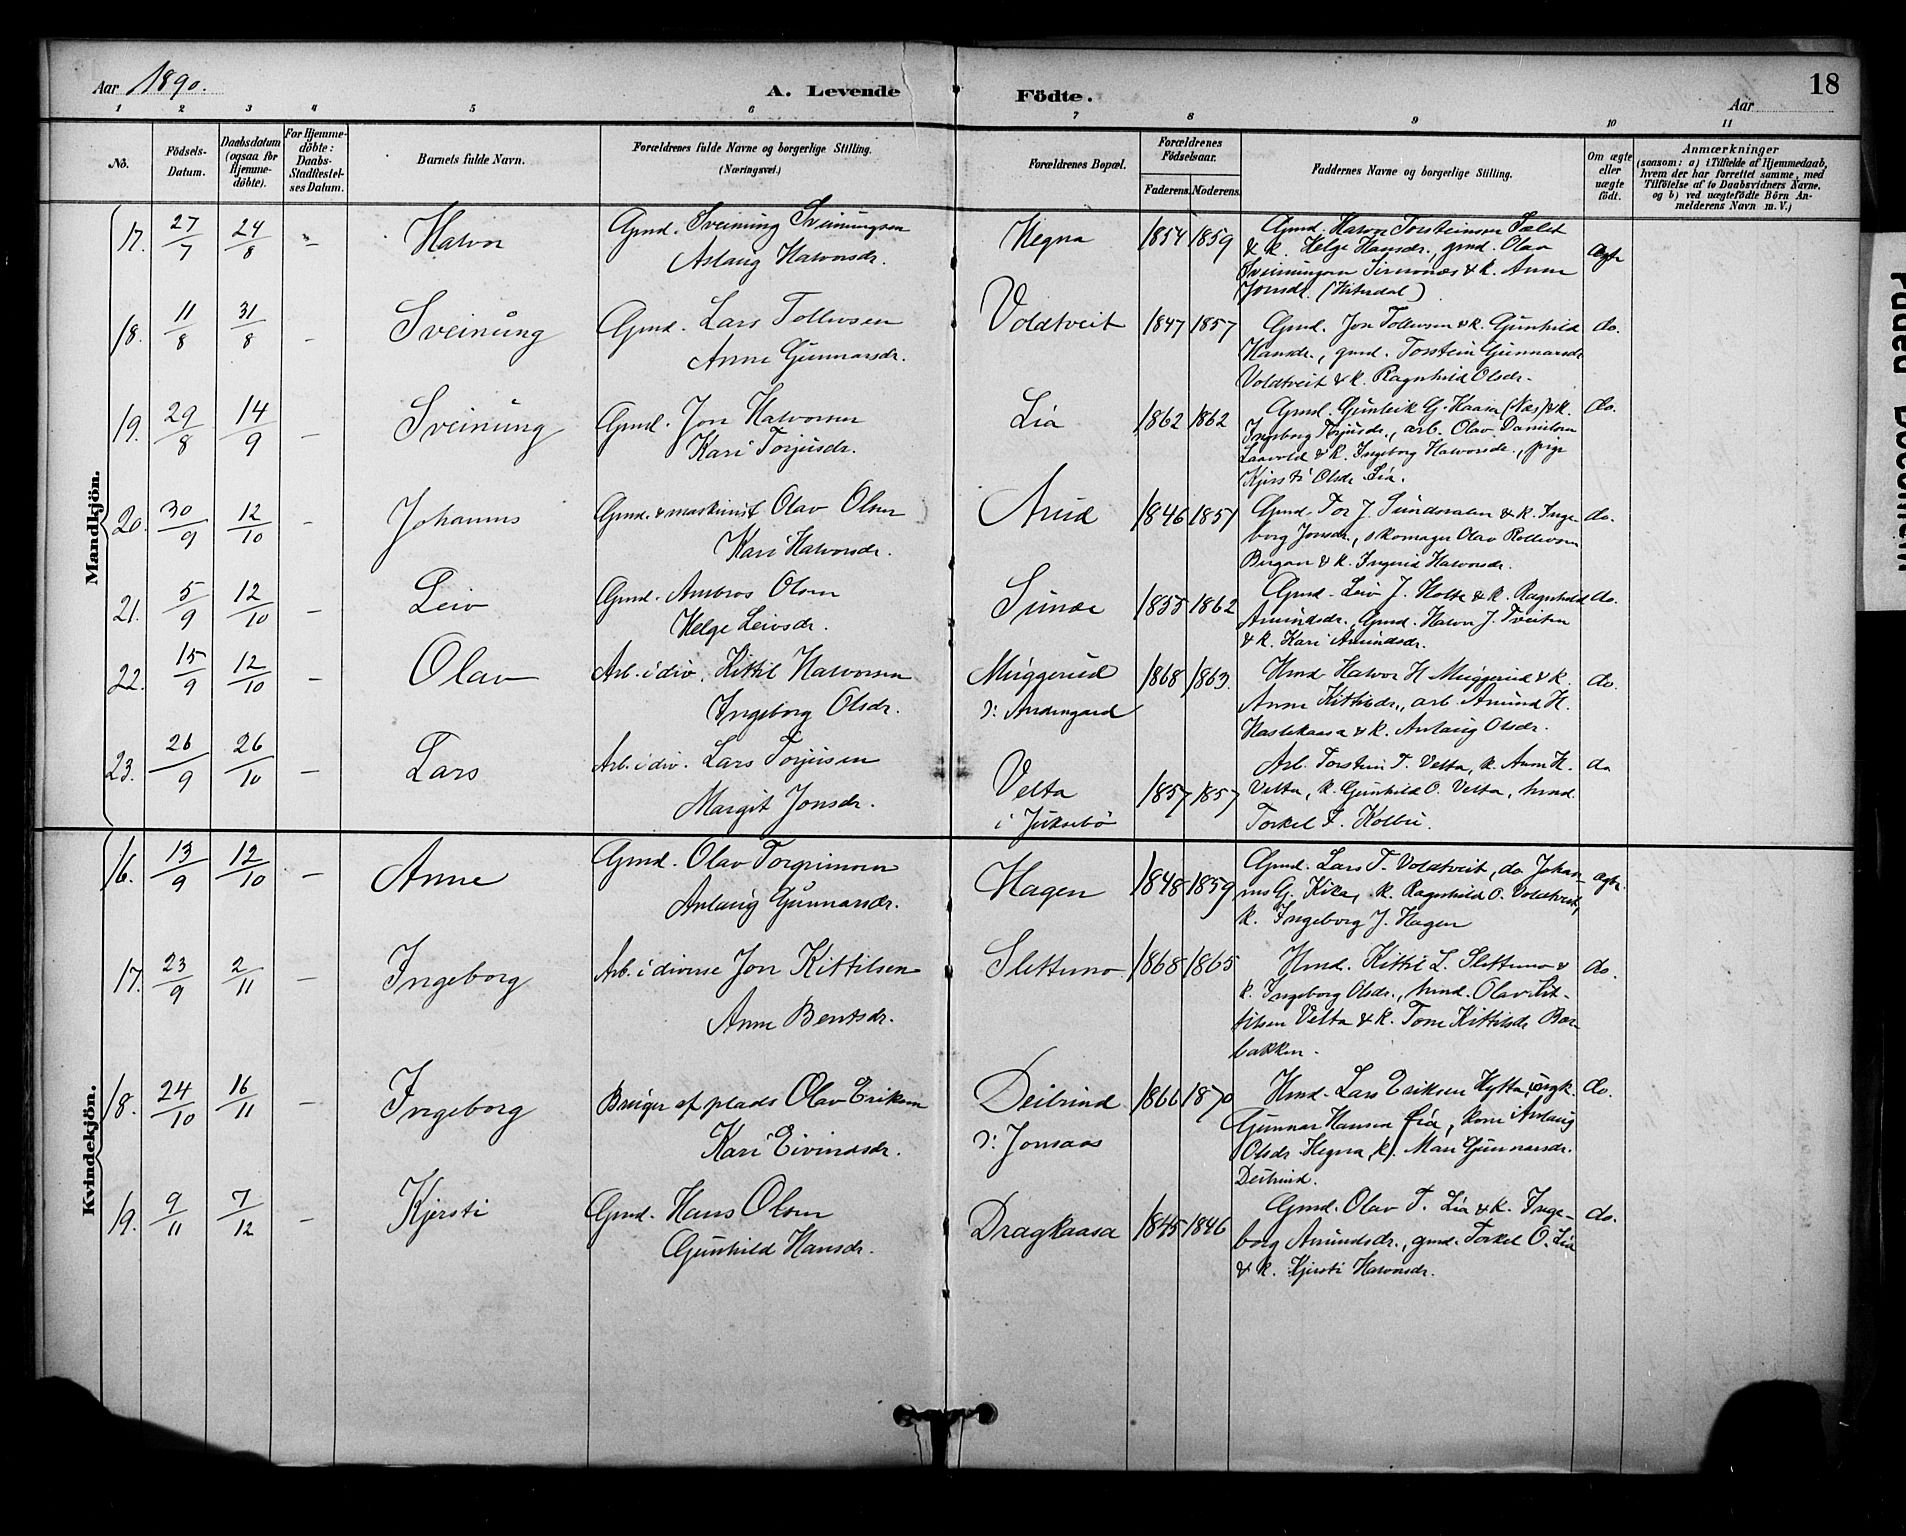 Aar 1890.
A. Levende Födte.
Aar
18
1 2 3 4 5 6 7 8 9 10 11
No.
Födsels-Datum.
Daabsdatum (ogsaa for Hjemmedöbte).
For Hjemmedöbte: Daabs-Stadfæstelses Datum.
Barnets fulde Navn.
Forældrenes fulde Navne og borgerlige Stilling. (Næringsvei.)
Forældrenes Bopæl.
Forældrenes Födselsaar.
Faderens. Moderens.
Faddernes Navne og borgerlige Stilling.
Om ægte eller uægte födt.
Anmærkninger
(saasom: a) i Tilfælde af Hjemmedaab, hvem der har forrettet samme, med Tilföielse af to Daabsvidners Navne, og b) ved uægtefödte Börn Anmelderens Navn m. V.)
Mandkjön.
17. 27/7 24/8 – Halvor Gmd. Sveinung Sveinungsen Hegna 1854 1859 Gmd. Halvor Torsteinsen Sælit ægte
Aslaug Halvorsdr. & k. Helge Hansdr., gmd. Olav
Sveinungsen & k. Anne
Jonsdr. (Hiterdal)
18. 11/8 31/8 – Sveinung Gmd. Lars Tollevsen Voldtveit 1847 1857 Gmd. Jon Tollevsen & k. Gunhild do.
Anne Gunnarsdr. Hansdr., gmd. Torstein Gunnarsdr
Voldtveit & k. Ragnhild Olsdr.
19. 29/8 14/9 – Sveinung Gmd. Jon Halvorsen Lia 1862 1862 Gmd. Gunleik G. Haasa (Næs) & k. do.
Kari Torjusdr. Ingeborg Torjusdr., arb. Olav Danielsen
& k. Ingeborg Halvorsdr., pige
Kjersti Olsdr. Lia.
20. 30/9 12/10 – Johannes Gmd. & maskinist Olav Olsen 1846 1857 Gmd. Tor J. & k. Inge- do.
Kari Halvorsdr. borg Jonsdr., skomager Olav Rollevsen
Bergan & k. Ingerid Halvorsdr.
21. 5/9 12/10 – Leiv Gmd. Ambros Olsen Sunde 1855 1862 Gmd. Leiv J. Holte & k. Ragnhild do.
Helge Leivsdr. Amundsdr., Gmd. Halvor J. Tveiten
& k. Kari Amundsdr.
22. 15/9 12/10 – Olav Arb. i div. Kittil Halvorsen Muggerud 1868 1863. Hmd Halvor H Muggerud & k. do.
Ingeborg Olsdr. Anne Kittilsdr., arb. Amund H.
Haslekaasa & k. Aslaug Olsdr.
23. 26/9 26/10 – Lars Arb. i div. Lars Torjusen Velta 1857 1857 Arb. Torstein T. Velta, k. Anne H. do
Margit Jonsdr. i Juksebö Velta, k. Gunhild O. Velta, hmd.
Torkel T. Kolbu.
Kvindekjön.
16. 13/9 12/10 – Anne Gmd. Olav Torgrimsen Hagen 1848 1859 Gmd. Lars T. Voldtveit, do. Johan- ægte.
Aslaug Gunnarsdr. nes G. Kika, k. Ragnhild O. Voldtveit,
k. Ingeborg J. Hagen
17. 23/9 2/11 – Ingeborg Arb. i diverse Jon Kittilsen Slettemo 1868 1865 Hmd. Kittil L. Slettemo & do.
Anne Bentsdr. k. Ingeborg Olsdr., hmd. Olav Kit-
tilsen Velta & k. Tone Kittilsdr Bær-
bakken.
18. 24/10 16/11 – Ingeborg Bruger af plads Olav Eriksen Deilrind 1866 1870 Hmd. Lars Eriksen Hytta, ungk. do.
Kari Eivindsdr. Jonsaas Gunnar Hansen Lia, kone Aslaug
Olsdr Hegna, k. Mari Gunnarsdr.
Deilrind.
19. 9/11 7/12 – Kjersti Gmd. Hans Olsen Dragkaasa 1845 1846 Gmd. Olav T. Lia & k. Inge- do.
Gunhild Hansdr. borg Amundsdr., gmd. Torkel O. Lia
& k. Kjersti Halvorsdr.